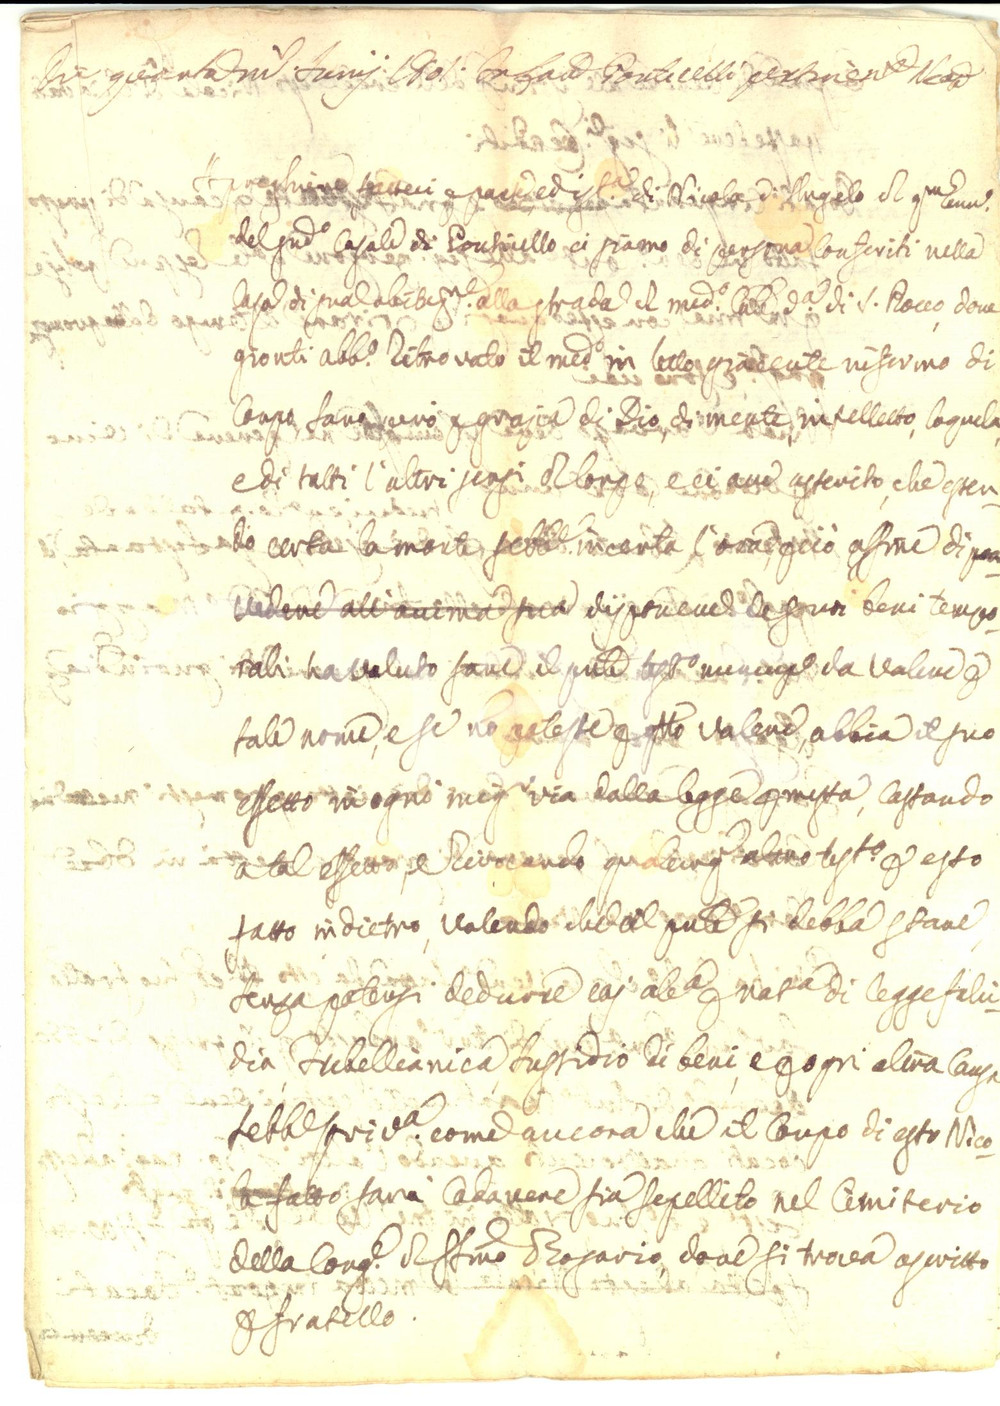 Die quarta m.s Junij 1801: In Casali Ponticelli pertinen.e Neap.
di Nicola di Angelo
del pnd.o Casale di Ponticello ci siamo di persona conferiti nella
Casa di sua abitaz.ne alla strada di S. Rocco, dove
gionti abb.o ritrovato il med.o in letto giacente infermo di
Corpo, sano però p grazia di Dio, di mente, intelletto, loquela,
e di tutti l'altri sensi del corpo, e ci ave asserito, che essen-
do certa la morte, sebb.e incerta l'ora, p ciò affine di
vedere all'anima sua disponere de suoi beni tempo-
rali ha voluto fare il pnte test.o nuncup.o da valere p
tale nome, e se nò potesse p qsto valere, abbia il suo
effetto in ogni meg.r via dalla legge pmessa, cassando
a tal effetto, e rivocando qualunq.e altro test.o p esso
fatto indietro, volendo che il pnte si debba stare,
senza potersi dedurre cos' alc.a p nat.a di legge falci-
dia, Trebellianica, sussidio di beni, e p ogni altra causa
sebb.e priv.a: come ancora che il Corpo di esso Nico-
la fatto sarà cadavere sia sepellito nel Cimiterio
della Cong.e del SSmo Rosario, dove si trova ascritto
p fratello.